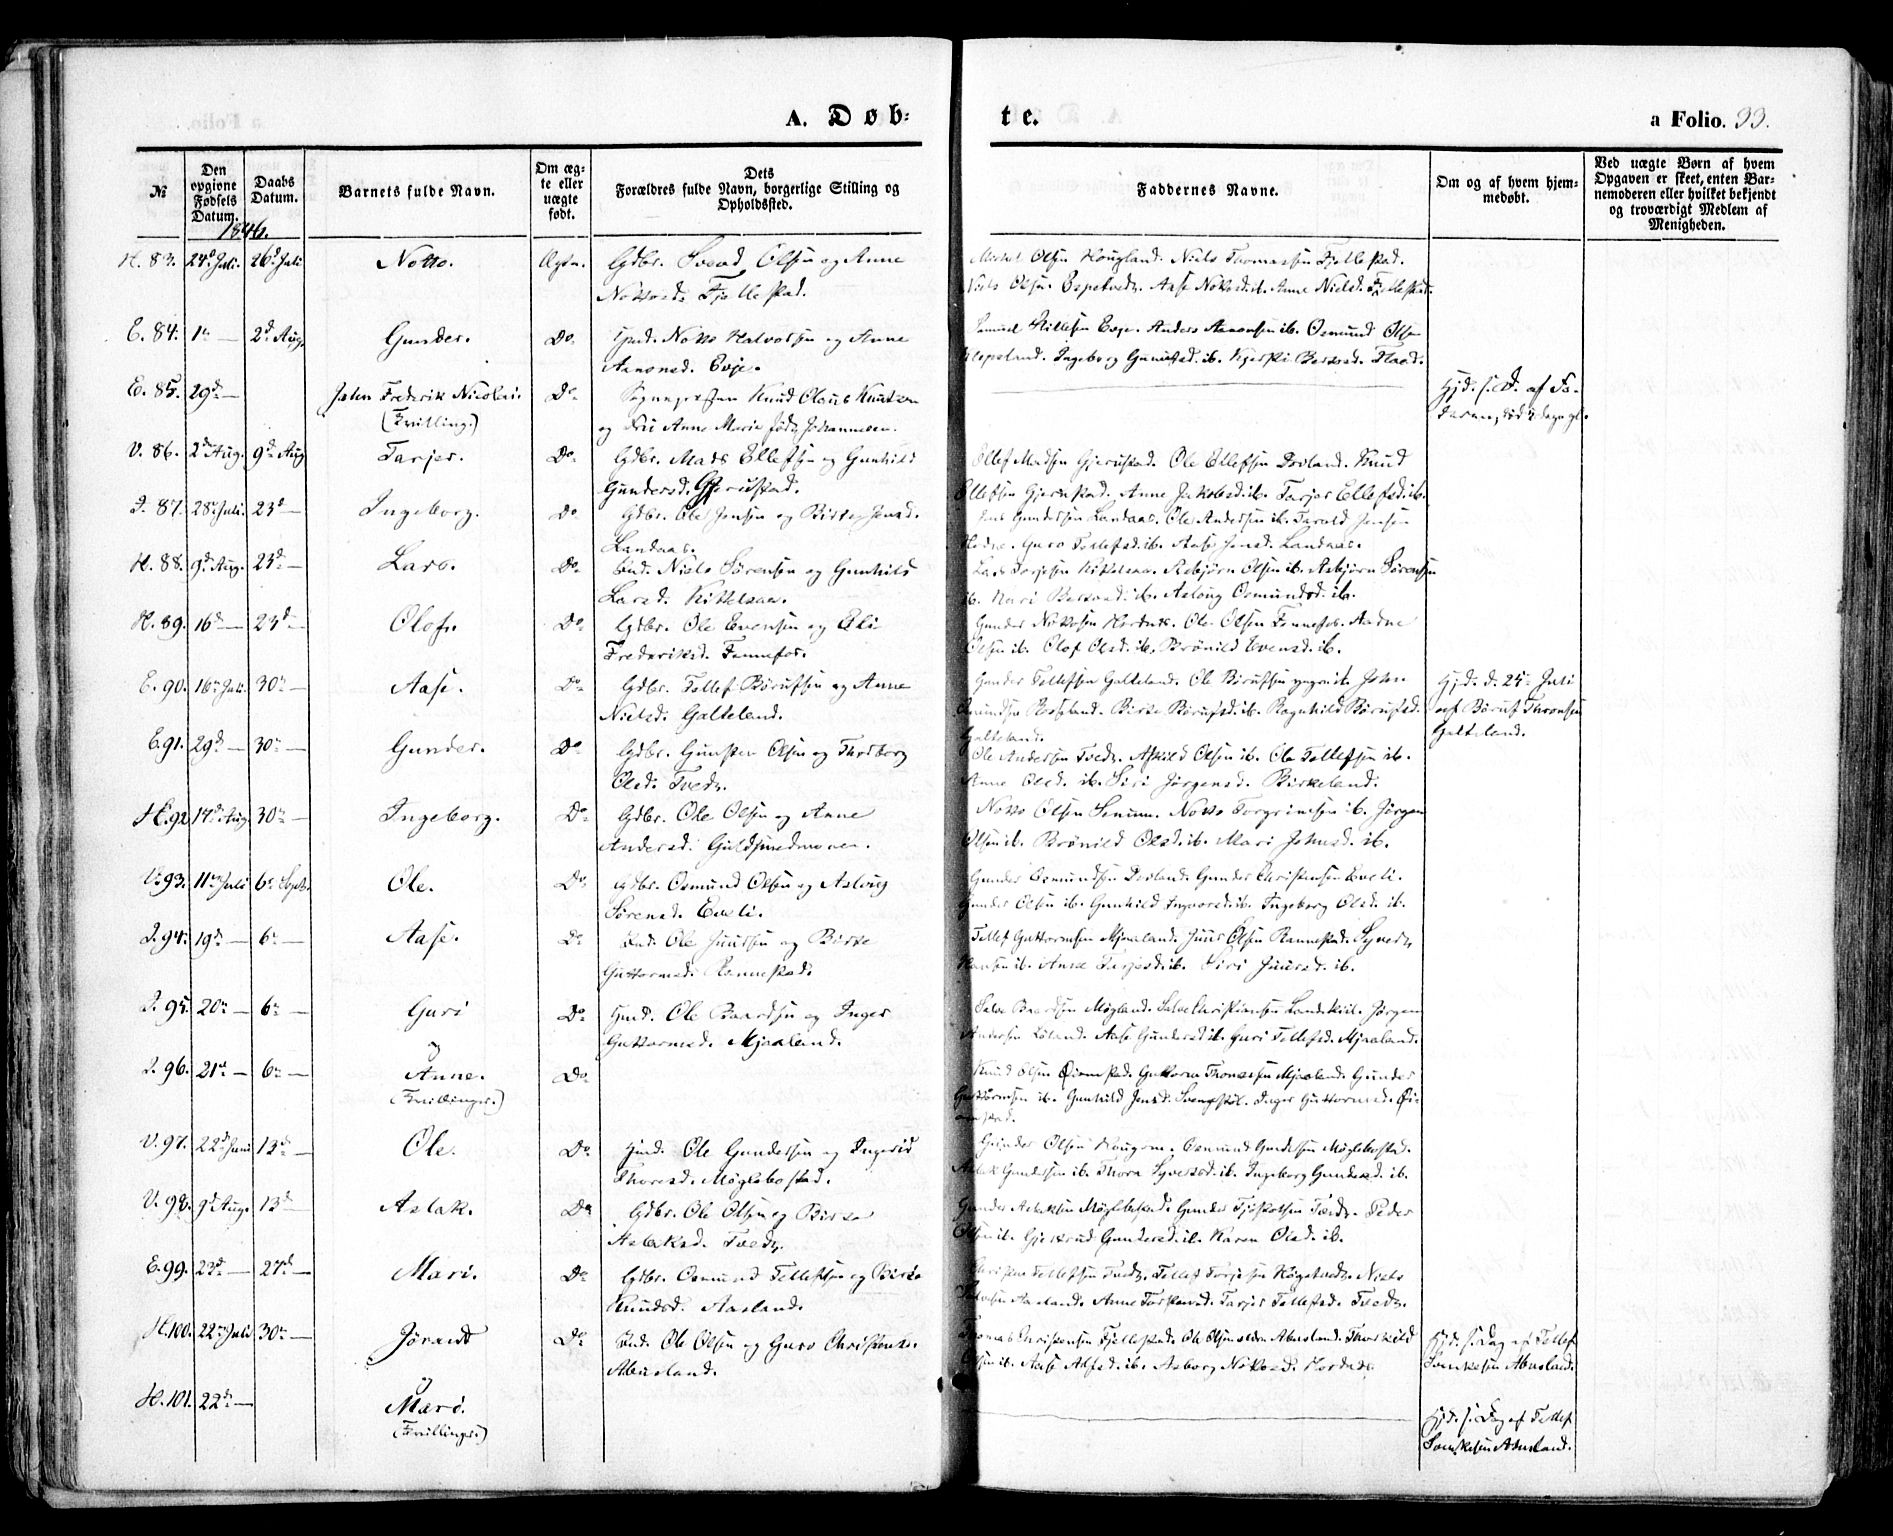 A. Døb-
te.
a Folio. 33.
№
Den opgivne Fødsels Datum.
Daabs Datum.
Barnets fulde Navn.
Om ægte eller uægte født.
Dets Forældres fulde Navn, borgerlige Stilling og Opholdssted.
Faddernes Navne.
Om og af hvem hjemmedøbt.
Ved uægte Børn af hvem Opgaven er skeet, enten Barnemoderen eller hvilket bekjendt og troværdigt Medlem af Menigheden.
1846.
H. 83. 24d Juli. 26d Juli Notto. Ægte. Gdbr. Svend Olsen og Anne
Nottosd. Fjellestad.
Olsen Hougland. Niels Thomassen Fjellestad.
Niels Olsen Espetvedt. Aase Nottosd. ib. Anne Nielsd. Fjellestad.
E. 84. 1te — 2d Aug. Gunder. Do Hmd. Notto Halvorsen og Anne
Aanonsd. Evje.
Evje. Anders Aanonsen ib. Osmund Olsen
Ingeborg Gunstsd. ib. Flaad.
E. 85. 29d — John Frederik Nicolai Do Knud Claus Knutzen
(Tvilling.) og Anne Marie født Johannesen.
Hjd. s. D. af Fa-
deren, død 2 Dage gl.
V. 86. 2d Aug. 9d Aug Tarjer. Do Gdbr. Mads Ellefsen og Gunhild
Gundersd. Gjerustad.
Ellef Madsen Gjerustad. Ole Ellefsen Dovland. Knud
Ellefsen Gjerustad. Anne Jakobsd. ib. Tarjer Ellefsd. ib.
I. 87. 28de Juli. 23d — Ingeborg. Do Gdbr. Ole Jensen og Birte Jensd.
Landaas.
Jens Gundersen Landaas. Ole Andersen ib. Tarald Jensen
Guro Tellefsd. ib. Aase Jensd. Landaas.
H. 88. 9d Aug. 23d — Lars. Do Ind. Niels Sørensen og Gunhild
Larsd. Kittelsaa.
Lars Tarjesen Kittelsaa. Asbjørn Olsen ib. Asbjørn Sørensen
ib. Mari ib. Asloug Osmundsd. ib.
H. 89. 16d — 23d — Olof. Do Gdbr. Ole Evensen og Eli
Frederiksd. Fennefos.
Gunder Nottosen Hordnes. Ole Olsen Fennefos. Aadne
Olsen ib. Olof Olsd. ib. Brønild Evensd. ib.
E. 90. 16de Juli. 30te — Aase. Do Gdbr. Tellef Børufsen og Anne
Nielsd. Galteland.
Gunder Tellefsen Galteland. Ole Børufsen yngre ib. John
Birte Børufsd. ib. Ragnhild Børufsd.
Galteland.
Hjd. d. 25te Juli
af Børuf Thronsen
Galteland.
E. 91. 29d — 30te — Gunder. Do Gdbr. Gunsten Olsen og Thorborg
Olsd. Tvedt.
Ole Andersen Tvedt. Askild Olsen ib. Ole Tellefsen ib.
Anne Olsd. ib. Siri Jørgensd. Birkeland.
H. 92 17d Aug. 30te — Ingeborg. Do Gdbr. Ole Olsen og Anne
Andersd. Guldsmedmoen.
Notto Olsen Senum. Notto Torgrimsen ib. Jørgen
Olsen ib. Brønild Olsd. ib. Mari Johnsd. ib.
V. 93. 11te Juli 6te Septr. Ole. Do Gdbr. Osmund Olsen og Asloug
Sørensd. Eveli.
Gunder Osmundsen Dovland. Gunder Christensen Eveli.
Gunder Olsen ib. Gunhild Ingvorsd. ib. Ingeborg Olsd. ib.
I. 94. 19d — 6te — Aase. Do Ind. Ole Juulsen og Birte
Guttormsd. Rannestad.
Tellef Guttormsen Mjaaland. Juul Olsen Rannestad. Syvert
Hansen ib. Anne Tarjesd. ib. Siri Juulsd. ib.
I. 95. 20de — 6te — Guri Do Hmd. Ole Baardsen og Inger
Guttormsd. Mjaaland.
Salve Baardsen Møgland. Salve Christiansen Landskiil. Jørgen
Andersen Løland. Aase Gundersd. ib. Guri Tellefsd. Mjaaland.
I. 96. 21de — 6te — Anne. Do
(Tvillinger.)
Knud Olsen Øienstad. Guttorm Thomassen Mjaaland. Gunder
Guttormsen ib. Gunhild Jensd. Inger Guttormsd. Øi-
enstad.
V. 97. 22d Juni 13d — Ole. Do Hmd. Ole Gundersen og Ingerid
Thoresd. Møglebostad.
Gunder Olsen Osmund Gundersen Møglebostad.
Aslak Gundersen ib. Thora Syversd. ib. Ingeborg Gundersd. ib.
V. 98. 9d Aug. 13d — Aslak. Do Gdbr. Ole Olsen og Birte
Aslaksd. Tvedt.
Gunder Aslaksen Møglebostad. Gunder Tvedt. Peder
Olsen ib. Gjertrud Gundersd. ib. Karen Olsd. ib.
E. 99. 23d — 27d — Mari. Do Gdbr. Osmund Tellefsen og Birte
Knudsd. Aasland.
Christen Tellefsen Tvedt. Tellef Tarjesen Høgetvedt. Niels
Aasland. Anne Torstensd. Tarjer Tellefsd. Tvedt.
H. 100. 22de Juli 30te — Jørand Do Ind. Ole Olsen og Guro Christensd.
Abusland.
Thomas Christensen Fjellestad. Ole Olsen Abusland. Thorkild
Olsen ib. Aase Alfsd. ib. Asborg Nottosd. Hordnes.
Hjd. s. Dag af Tellef
Abusland.
H. 101. 22de — Mari.
(Tvillinger.)
Hjd. s. Dag af Tellef
Abusland.